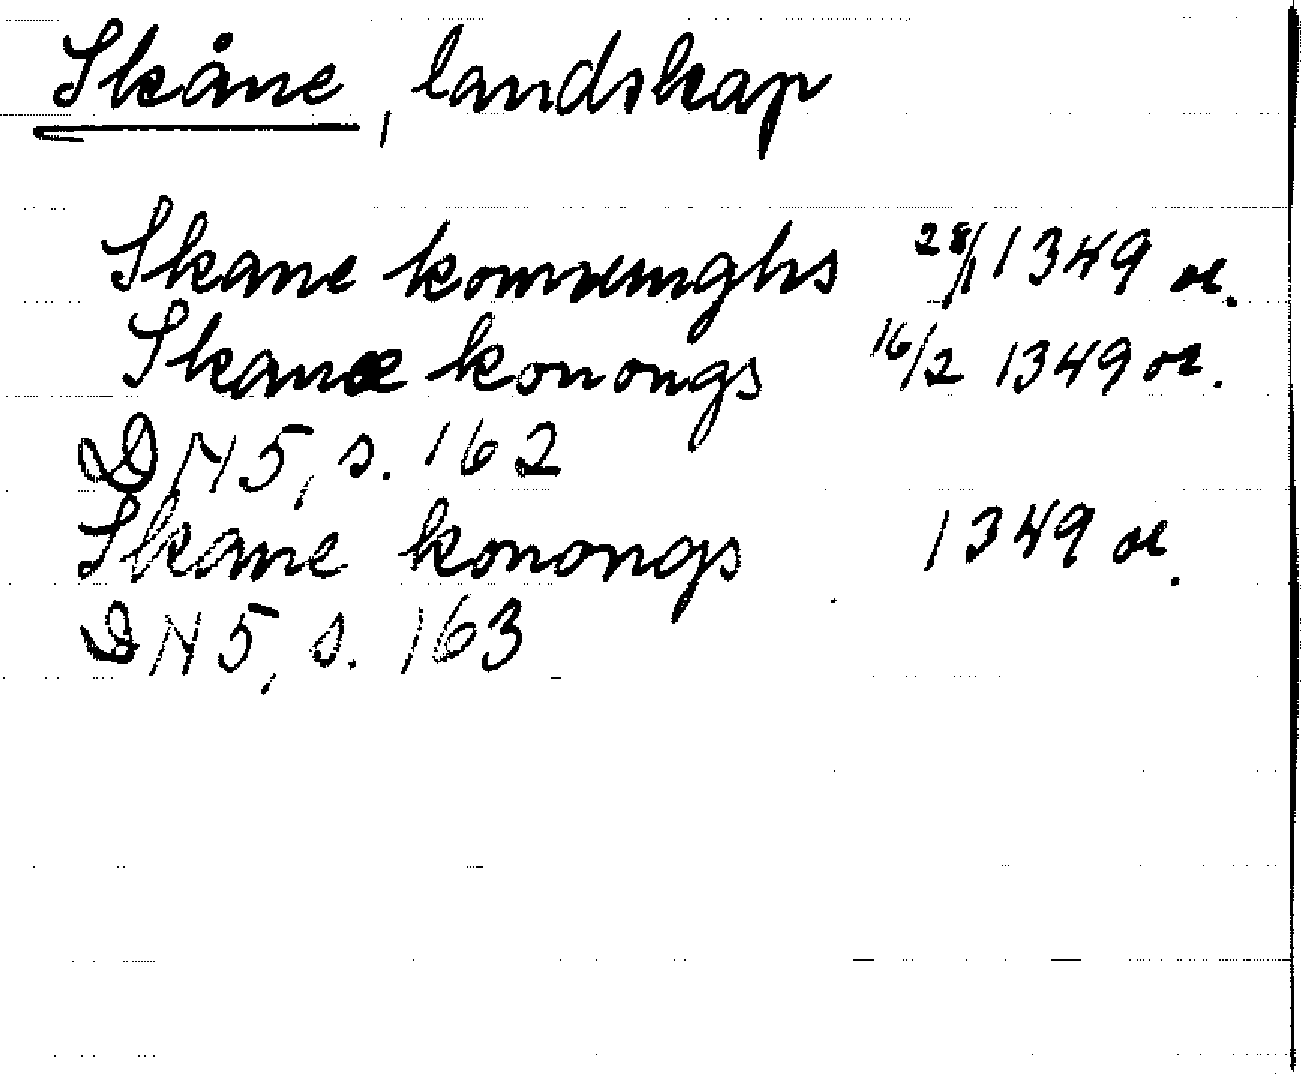 Skåne, landskap
Skane konnunghs 28/1 1349 or.
Skanæ konongs 16/2 1349 or.
DN 5, s. 162
Skane konongs 1349 or.
DN 5, s. 163